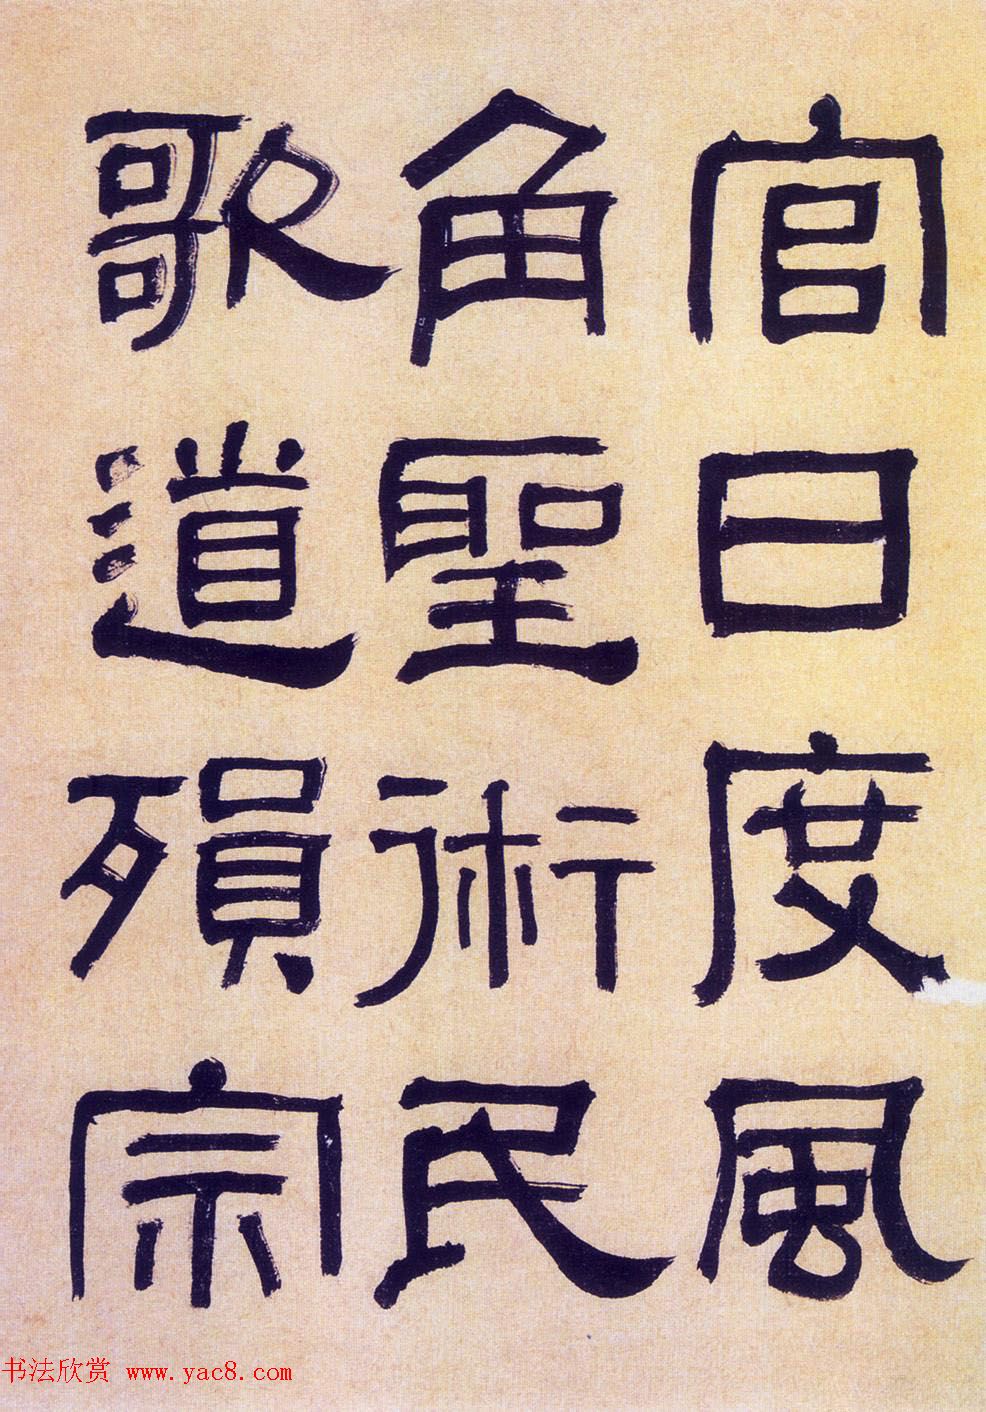 官日度風
角聖術民
歌道殞宗
书法欣赏 www.yac8.com